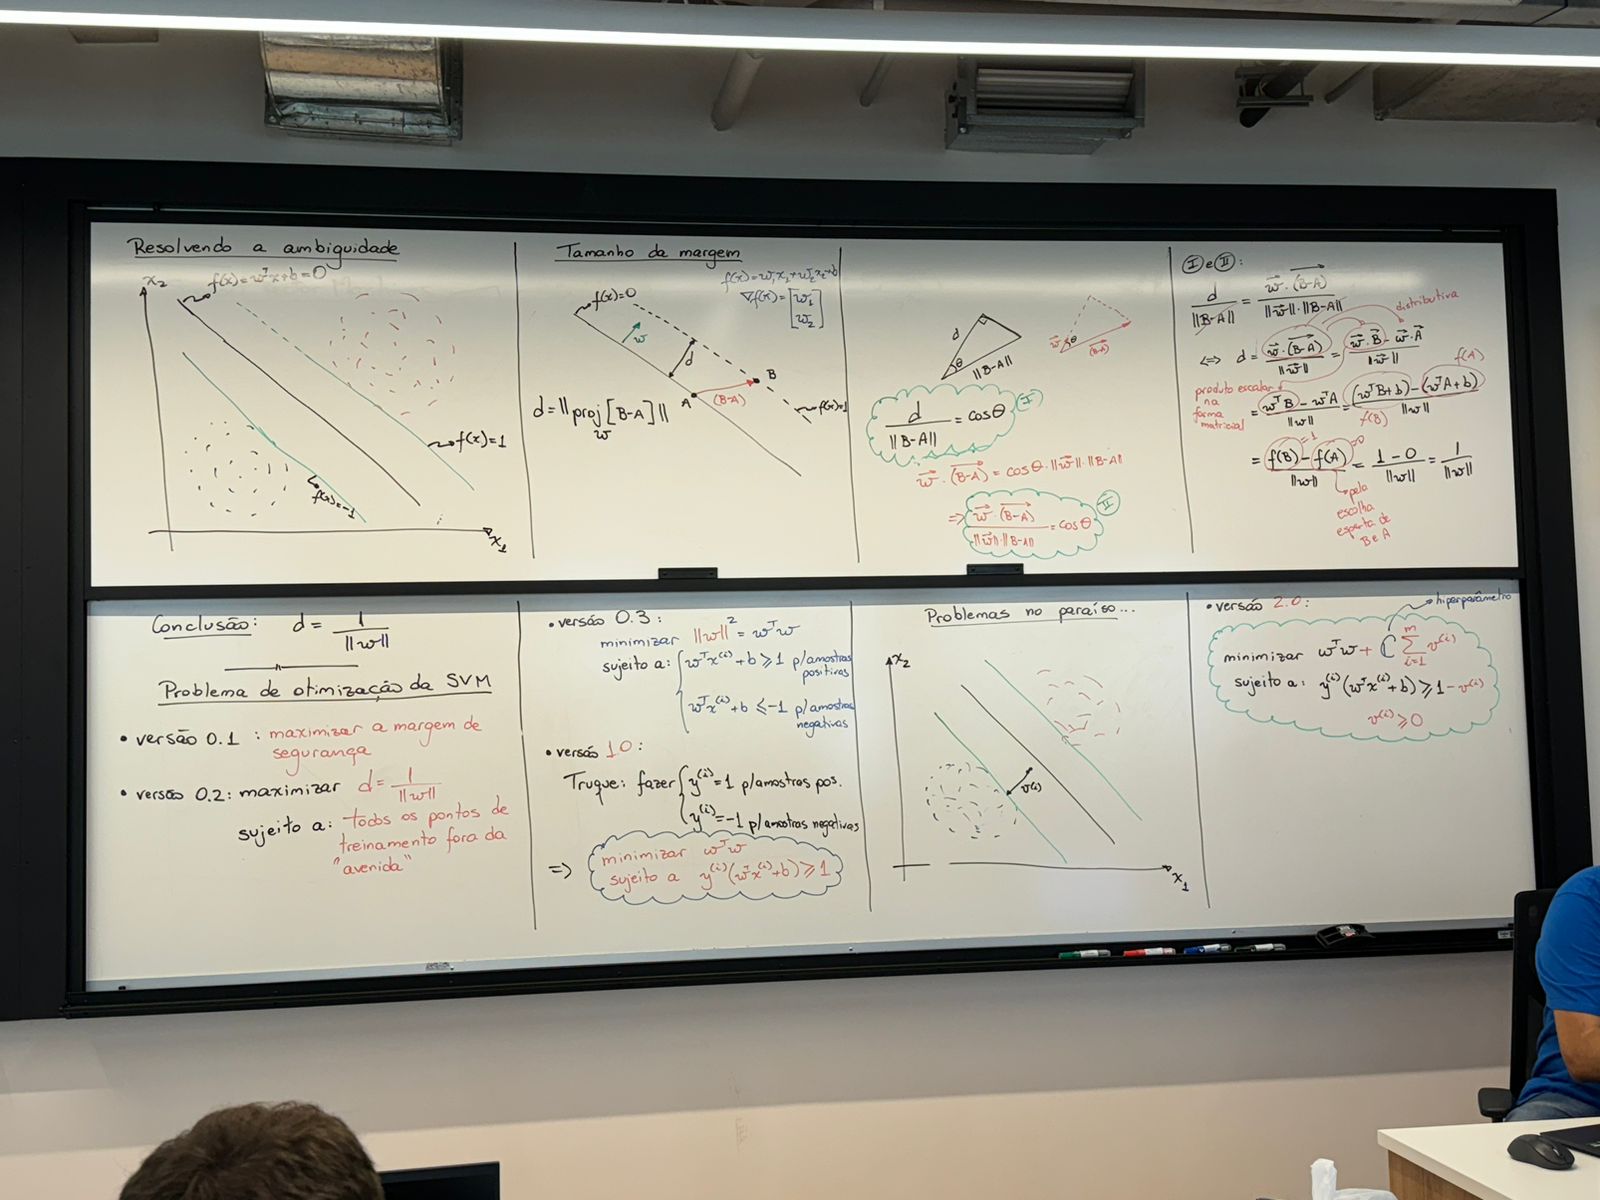 Resolvendo a ambiguidade
x₂
f(x)=wᵀx+b=0
f(x)=1
f(x)=-1
x₁
Tamanho da margem
f(x)=w₁x₁+w₂x₂+b
∇f(x)=[w₁ w₂]
f(x)=0
w
d
B
A
(B-A)
f(x)=1
d=||proj_w [B-A]||
d
θ
||B-A||
w θ
(B-A)
d/||B-A|| = cos θ (I)
w⃗·(B-A) = cos θ·||w⃗||·||B-A||
=> w⃗·(B-A)/||w⃗||·||B-A|| = cos θ (II)
(I) e (II):
d/||B-A|| = w⃗·(B-A)/||w⃗||·||B-A||
distributiva
<=> d = w⃗·(B-A)/||w⃗|| = w⃗·B⃗-w⃗·A⃗/||w⃗||
f(A)
produto escalar
na
forma
matricial
= wᵀB-wᵀA/||w|| = (wᵀB+b)-(wᵀA+b)/||w||
f(B)
=1 =0
= f(B)-f(A)/||w|| = 1-0/||w|| = 1/||w||
pela
escolha
esperta de
B e A
Conclusão: d = 1/||w||
Problema de otimização da SVM
• versão 0.1 : maximizar a margem de
segurança
• versão 0.2: maximizar d=1/||w||
sujeito a: todos os pontos de
treinamento fora da
"avenida"
• versão 0.3:
minimizar ||w||² = wᵀw
sujeito a: { wᵀx⁽ⁱ⁾+b ⩾ 1 p/amostras
positivas
wᵀx⁽ⁱ⁾+b ⩽ -1 p/amostras
negativas
• versão 1.0:
Truque: fazer { y⁽ⁱ⁾=1 p/amostras pos.
y⁽ⁱ⁾=-1 p/amostras negativas
=> minimizar wᵀw
sujeito a y⁽ⁱ⁾(wᵀx⁽ⁱ⁾+b) ⩾ 1
Problemas no paraíso...
x₂
v⁽ⁱ⁾
x₁
• versão 2.0:
hiperparâmetro
minimizar wᵀw + C ∑ᵢ₌₁ᵐ v⁽ⁱ⁾
sujeito a: y⁽ⁱ⁾(wᵀx⁽ⁱ⁾+b) ⩾ 1-v⁽ⁱ⁾
v⁽ⁱ⁾ ⩾ 0